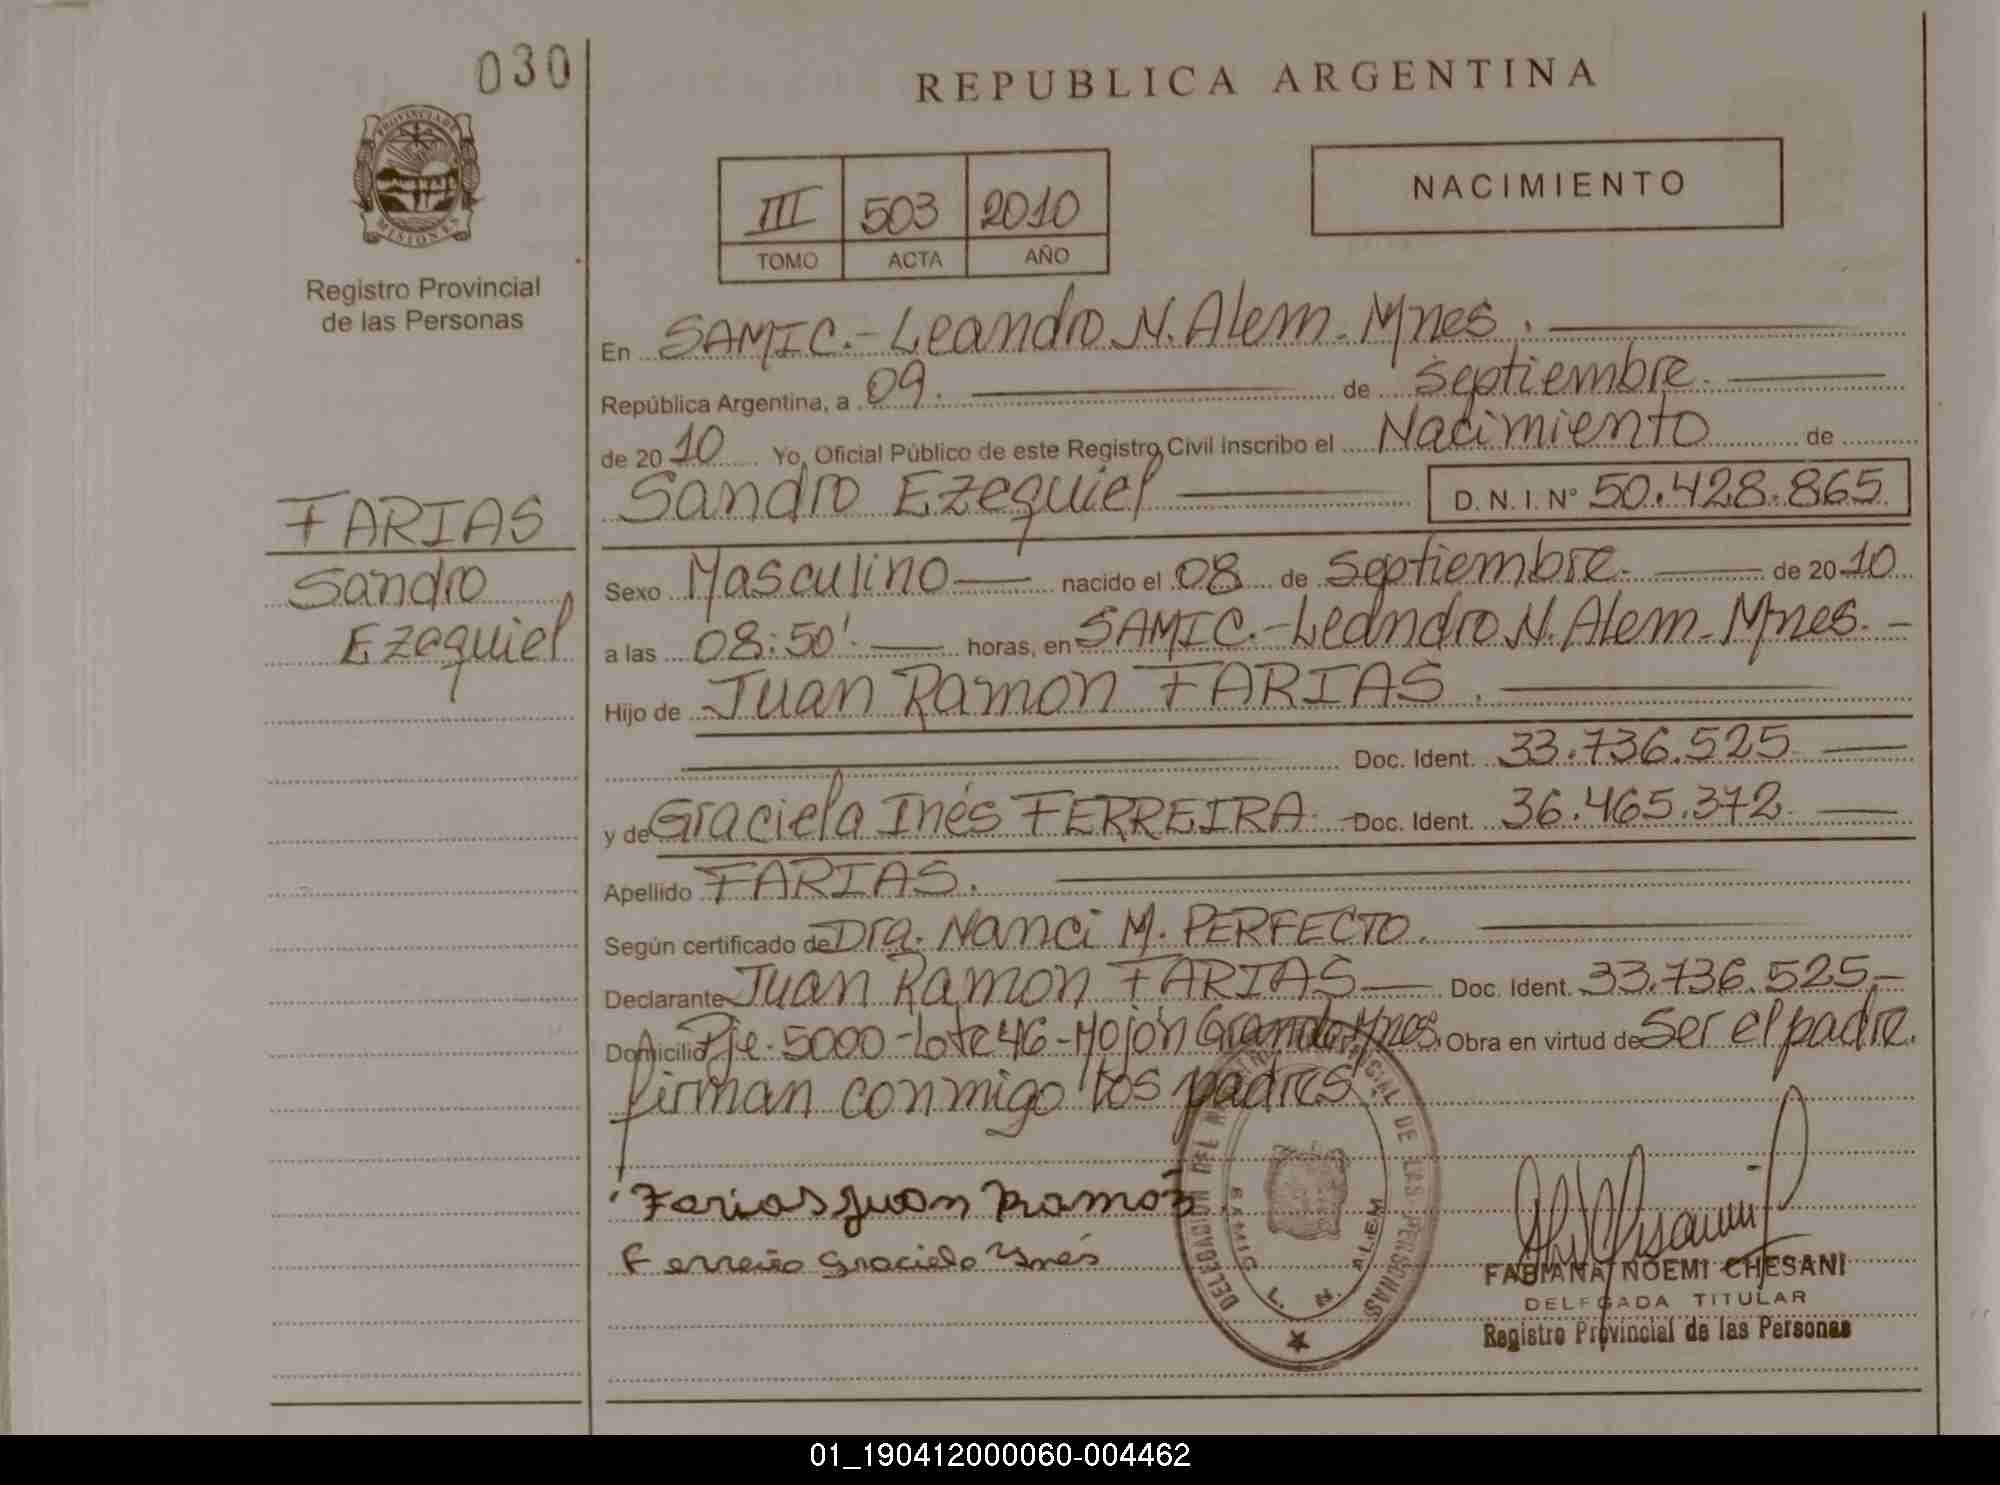 030
REPUBLICA ARGENTINA
PROVINCIA DE MISIONES
Registro Provincial
de las Personas
III 503 2010
TOMO ACTA AÑO
NACIMIENTO
En SAMIC.- Leandro N. Alem - Mnes.
República Argentina, a 09. de Septiembre.
de 2010 Yo, Oficial Público de este Registro Civil inscribo el Nacimiento de
Sandro Ezequiel D.N.I. Nº 50.428.865
FARIAS
Sandro
Ezequiel
Sexo Masculino nacido el 08 de Septiembre. de 2010
a las 08:50' horas, en SAMIC.- Leandro N. Alem - Mnes. -
Hijo de Juan Ramon FARIAS.
Doc. Ident. 33.736.525
y de Graciela Inés FERREIRA Doc. Ident. 36.465.372
Apellido FARIAS.
Según certificado de Dra. Nanci M. PERFECTO.
Declarante Juan Ramon FARIAS Doc. Ident. 33.736.525.-
Domicilio Pje. 5000 - Lote 46 - Mojón Grande Mnes. Obra en virtud de Ser el padre.
firman conmigo los padres
Farias Juan Ramon
Ferreira Graciela Ynés
DELEGACION DEL REGISTRO PROVINCIAL DE LAS PERSONAS
SAMIC L. N. ALEM
FABIANA NOEMI CHESANI
DELEGADA TITULAR
Registro Provincial de las Personas
01_190412000060-004462